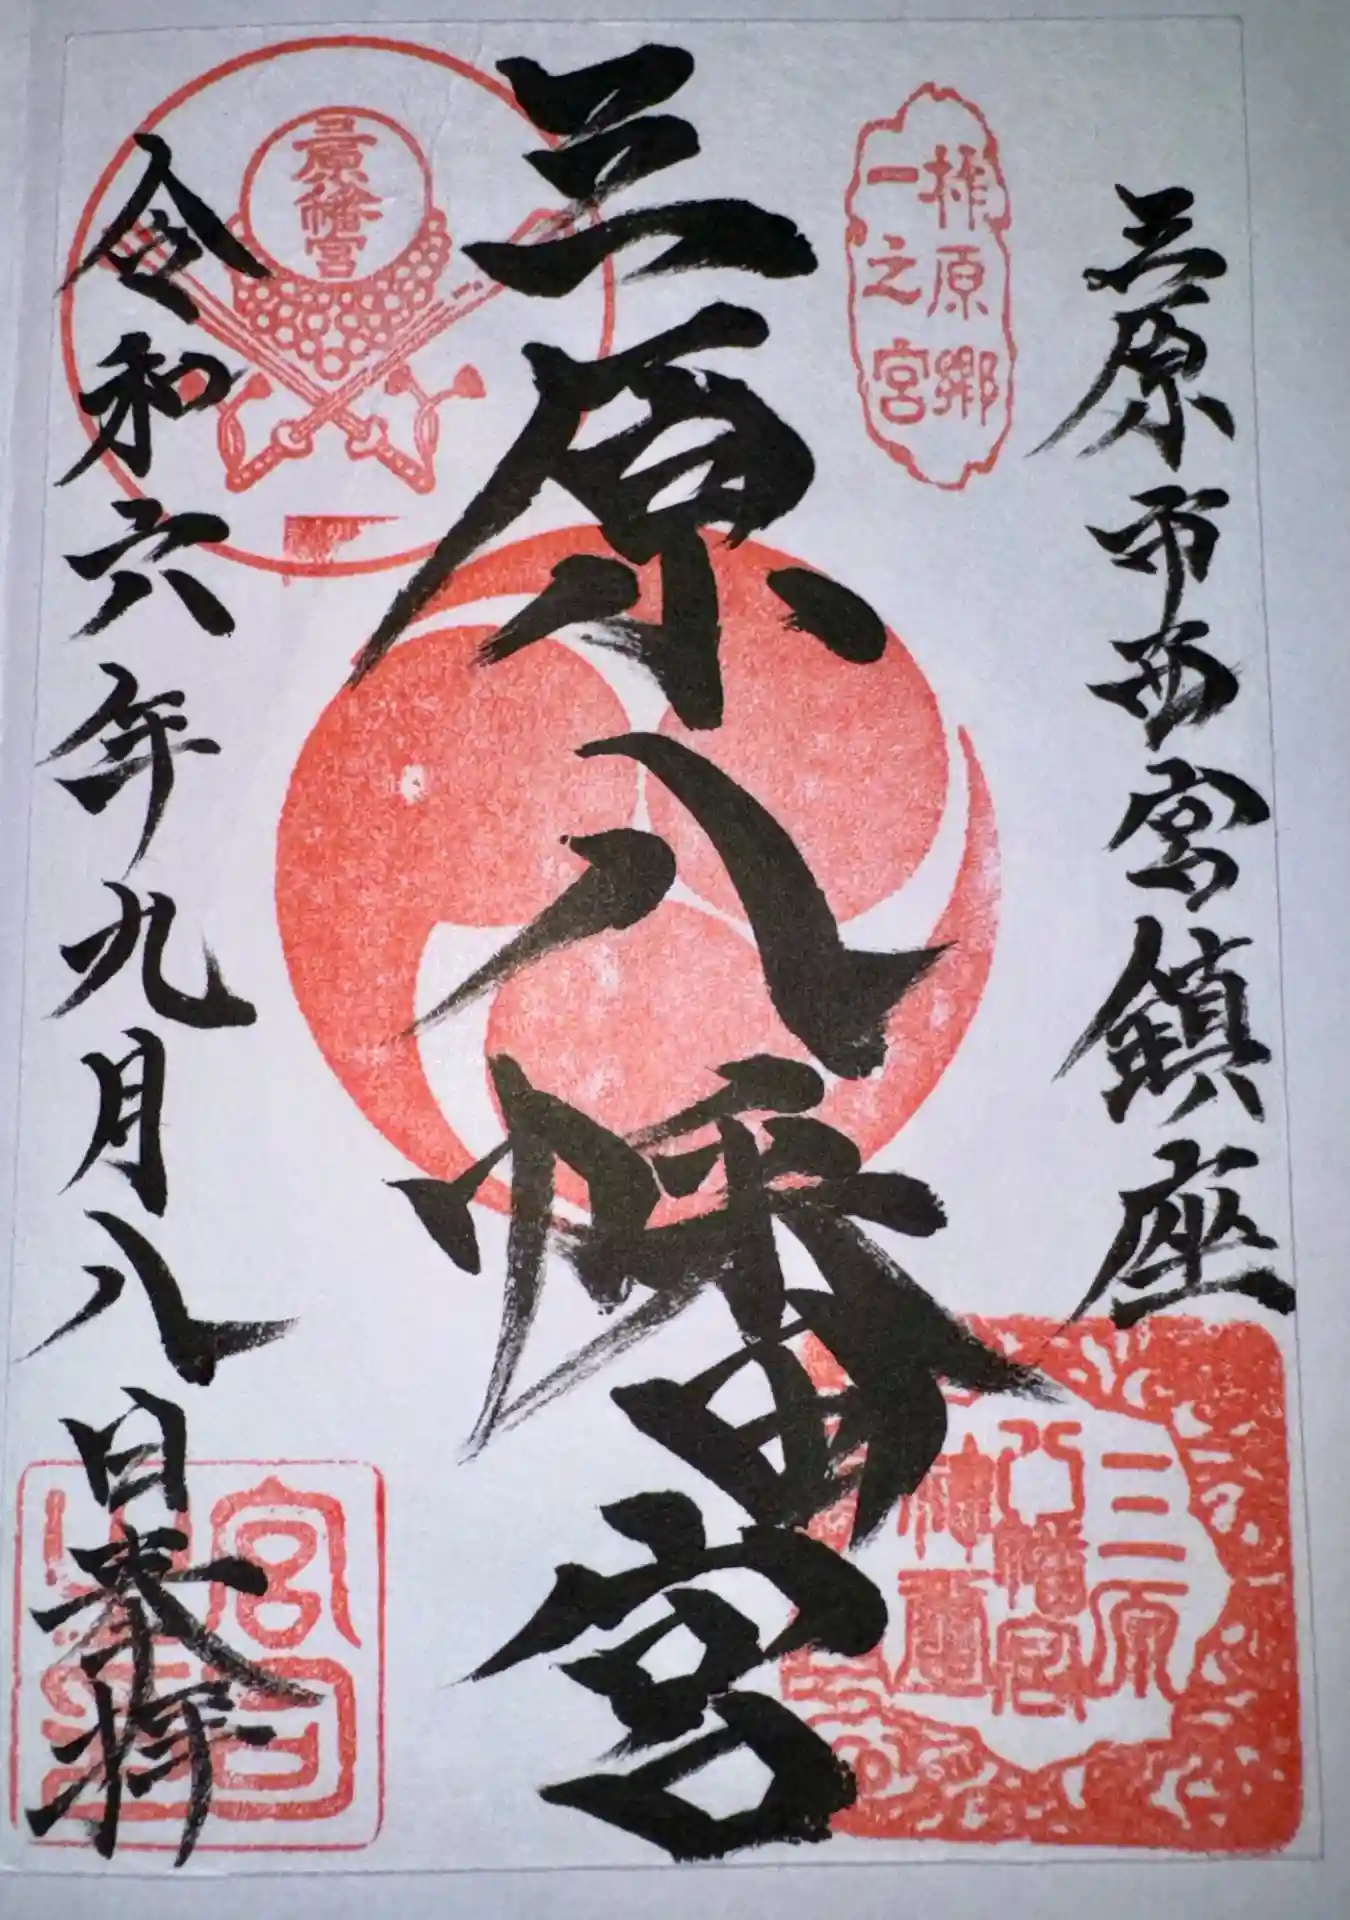 三原市西宮鎮座
柞原郷
一之宮
三原八幡宮
三原八幡宮
三原
八幡宮
神璽
令和六年九月八日奉拝
宮司